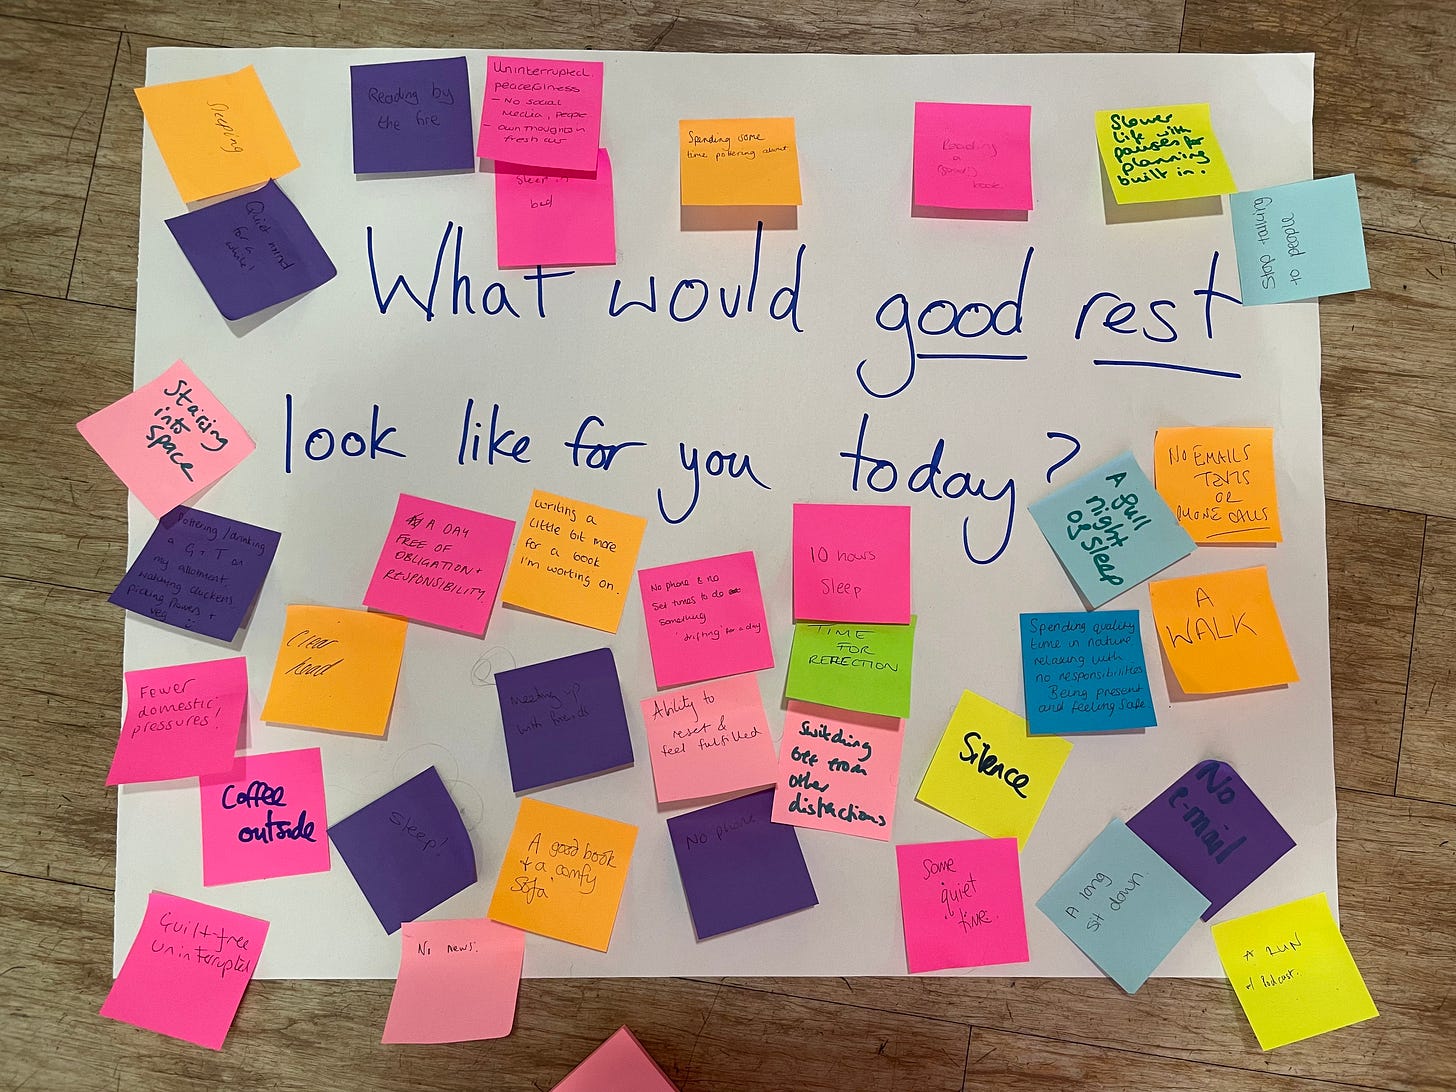 What would good rest
look like for you today?
Sleeping
Reading by
the fire
Uninterrupted.
peacefulness
- No social
media, people
- own thoughts in
fresh air
Sleep in
bed
Spending some
time pottering about
Reading
a
(good)
book.
Slower
life with
pauses for
planning
built in.
Stop talking
to people
Quiet mind
for a
while!
Staring
into
space
Pottering/drinking
a G+T on
my allotment,
watching chickens
picking flowers +
veg
A DAY
FREE OF
OBLIGATION +
RESPONSIBILITY.
Writing a
little bit more
for a book
I'm working on.
No phone & no
set times to do
something
'drifting' for a day
10 hours
Sleep
A full
night
of sleep
NO EMAILS
TEXTS
OR
PHONE CALLS
Clear
head
TIME
FOR
REFLECTION
Spending quality
time in nature
relaxing with
no responsibilities
Being present
and feeling safe
A
WALK
Fewer
domestic
pressures!
Meeting up
with friends
Ability to
reset &
feel fulfilled
Switching
off from
other
distractions
Silence
No
e-mail
Coffee
outside
Sleep!
A good book
+ a comfy
sofa
No phone
Some
quiet
time.
A long
sit down.
Guilt-free
uninterrupted
No news.
A RUN
Podcast.